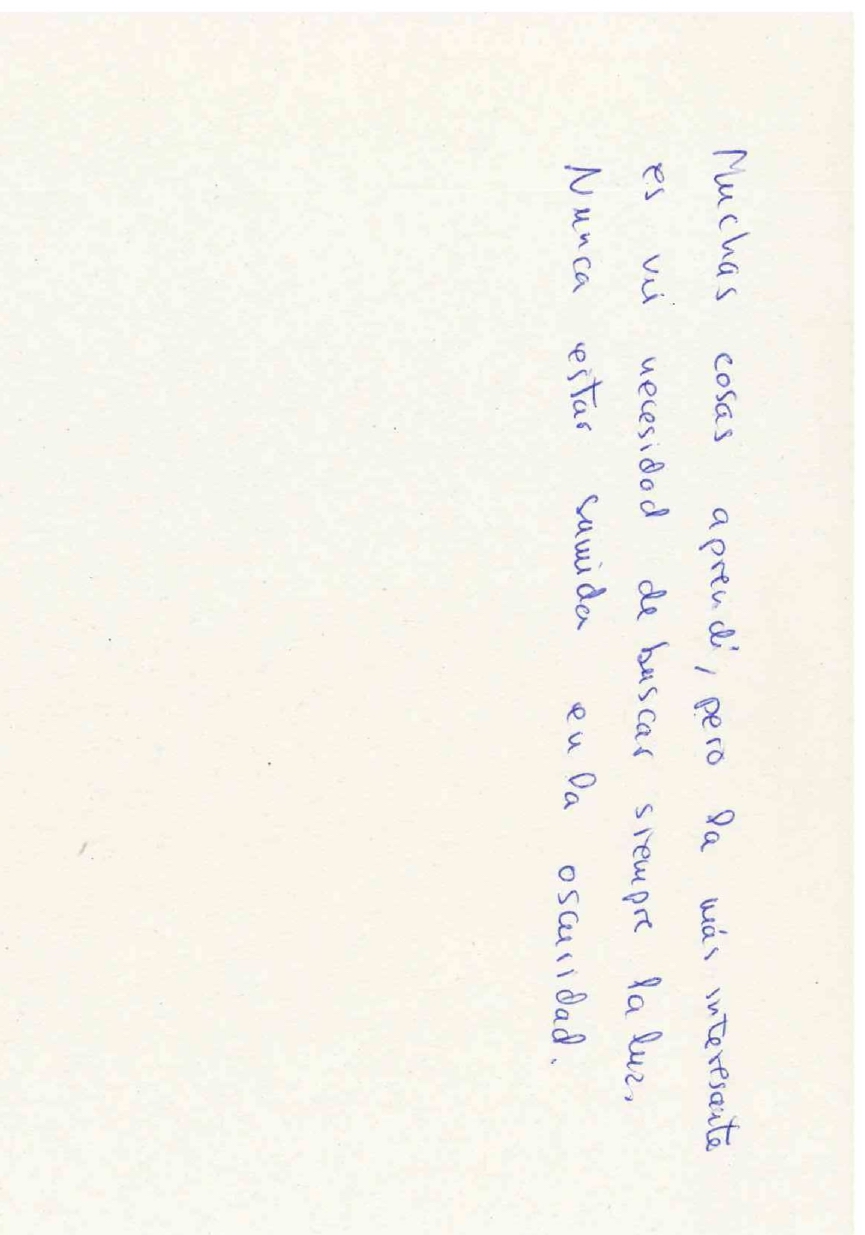 Muchas cosas aprendí, pero la más interesante
es mi necesidad de buscar siempre la luz.
Nunca estar sumida en la oscuridad.